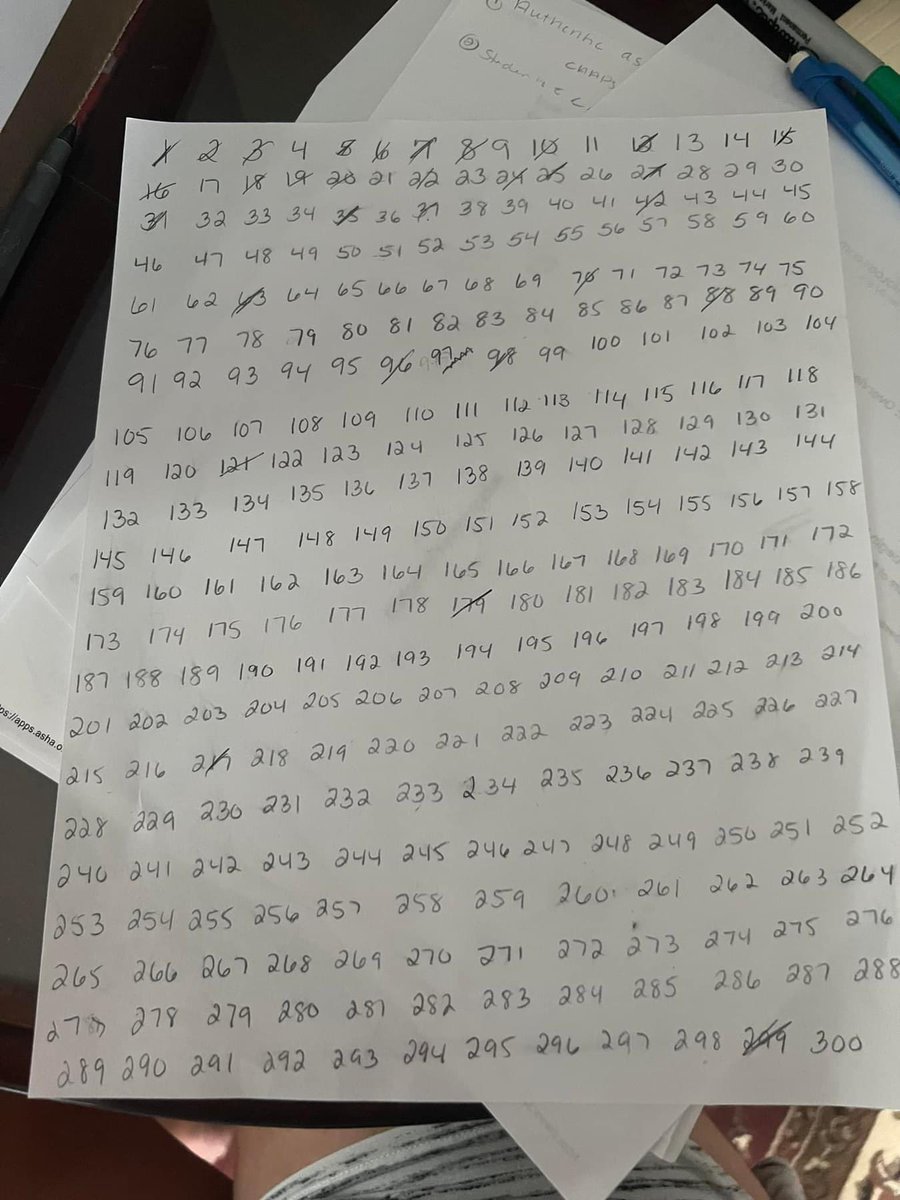 ① Authentic as
② Student c
1 2 3 4 5 6 7 8 9 10 11 12 13 14 15
16 17 18 19 20 21 22 23 24 25 26 27 28 29 30
31 32 33 34 35 36 37 38 39 40 41 42 43 44 45
46 47 48 49 50 51 52 53 54 55 56 57 58 59 60
61 62 63 64 65 66 67 68 69 70 71 72 73 74 75
76 77 78 79 80 81 82 83 84 85 86 87 88 89 90
91 92 93 94 95 96 97 98 99 100 101 102 103 104
105 106 107 108 109 110 111 112 113 114 115 116 117 118
119 120 121 122 123 124 125 126 127 128 129 130 131
132 133 134 135 136 137 138 139 140 141 142 143 144
145 146 147 148 149 150 151 152 153 154 155 156 157 158
159 160 161 162 163 164 165 166 167 168 169 170 171 172
173 174 175 176 177 178 179 180 181 182 183 184 185 186
187 188 189 190 191 192 193 194 195 196 197 198 199 200
201 202 203 204 205 206 207 208 209 210 211 212 213 214
215 216 217 218 219 220 221 222 223 224 225 226 227
228 229 230 231 232 233 234 235 236 237 238 239
240 241 242 243 244 245 246 247 248 249 250 251 252
253 254 255 256 257 258 259 260 261 262 263 264
265 266 267 268 269 270 271 272 273 274 275 276
277 278 279 280 281 282 283 284 285 286 287 288
289 290 291 292 293 294 295 296 297 298 299 300
ps://apps.asha.o